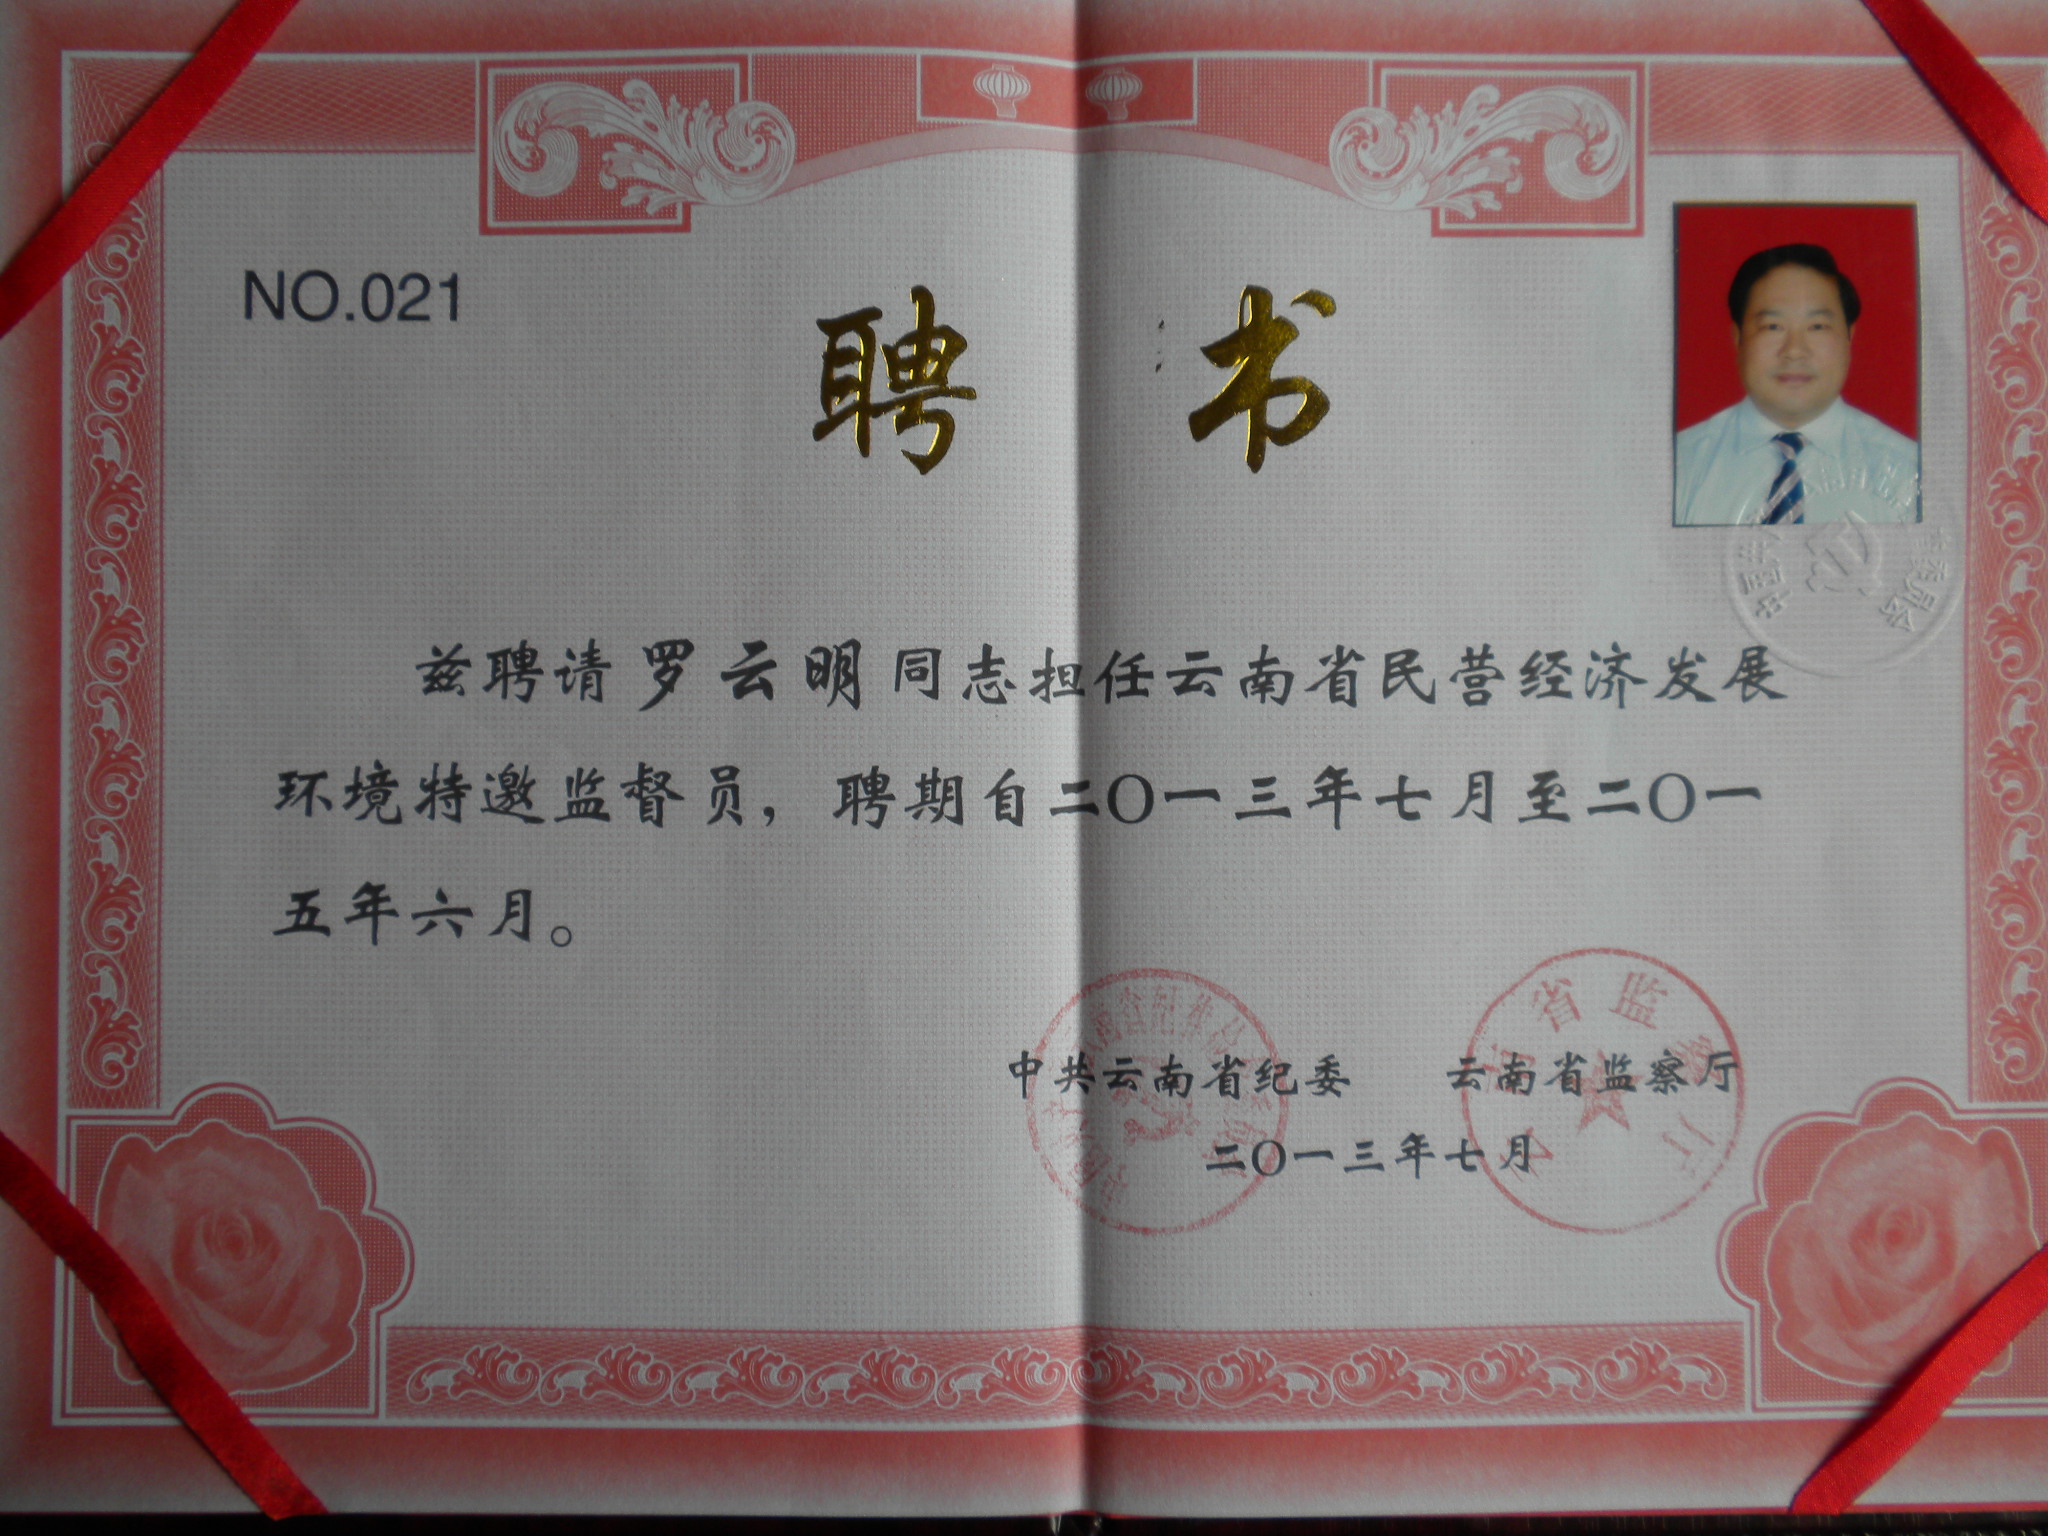 NO.021
聘 书
兹聘请罗云明同志担任云南省民营经济发展
环境特邀监督员，聘期自二〇一三年七月至二〇一
五年六月。
中共云南省纪委 云南省监察厅
二〇一三年七月
省监察厅